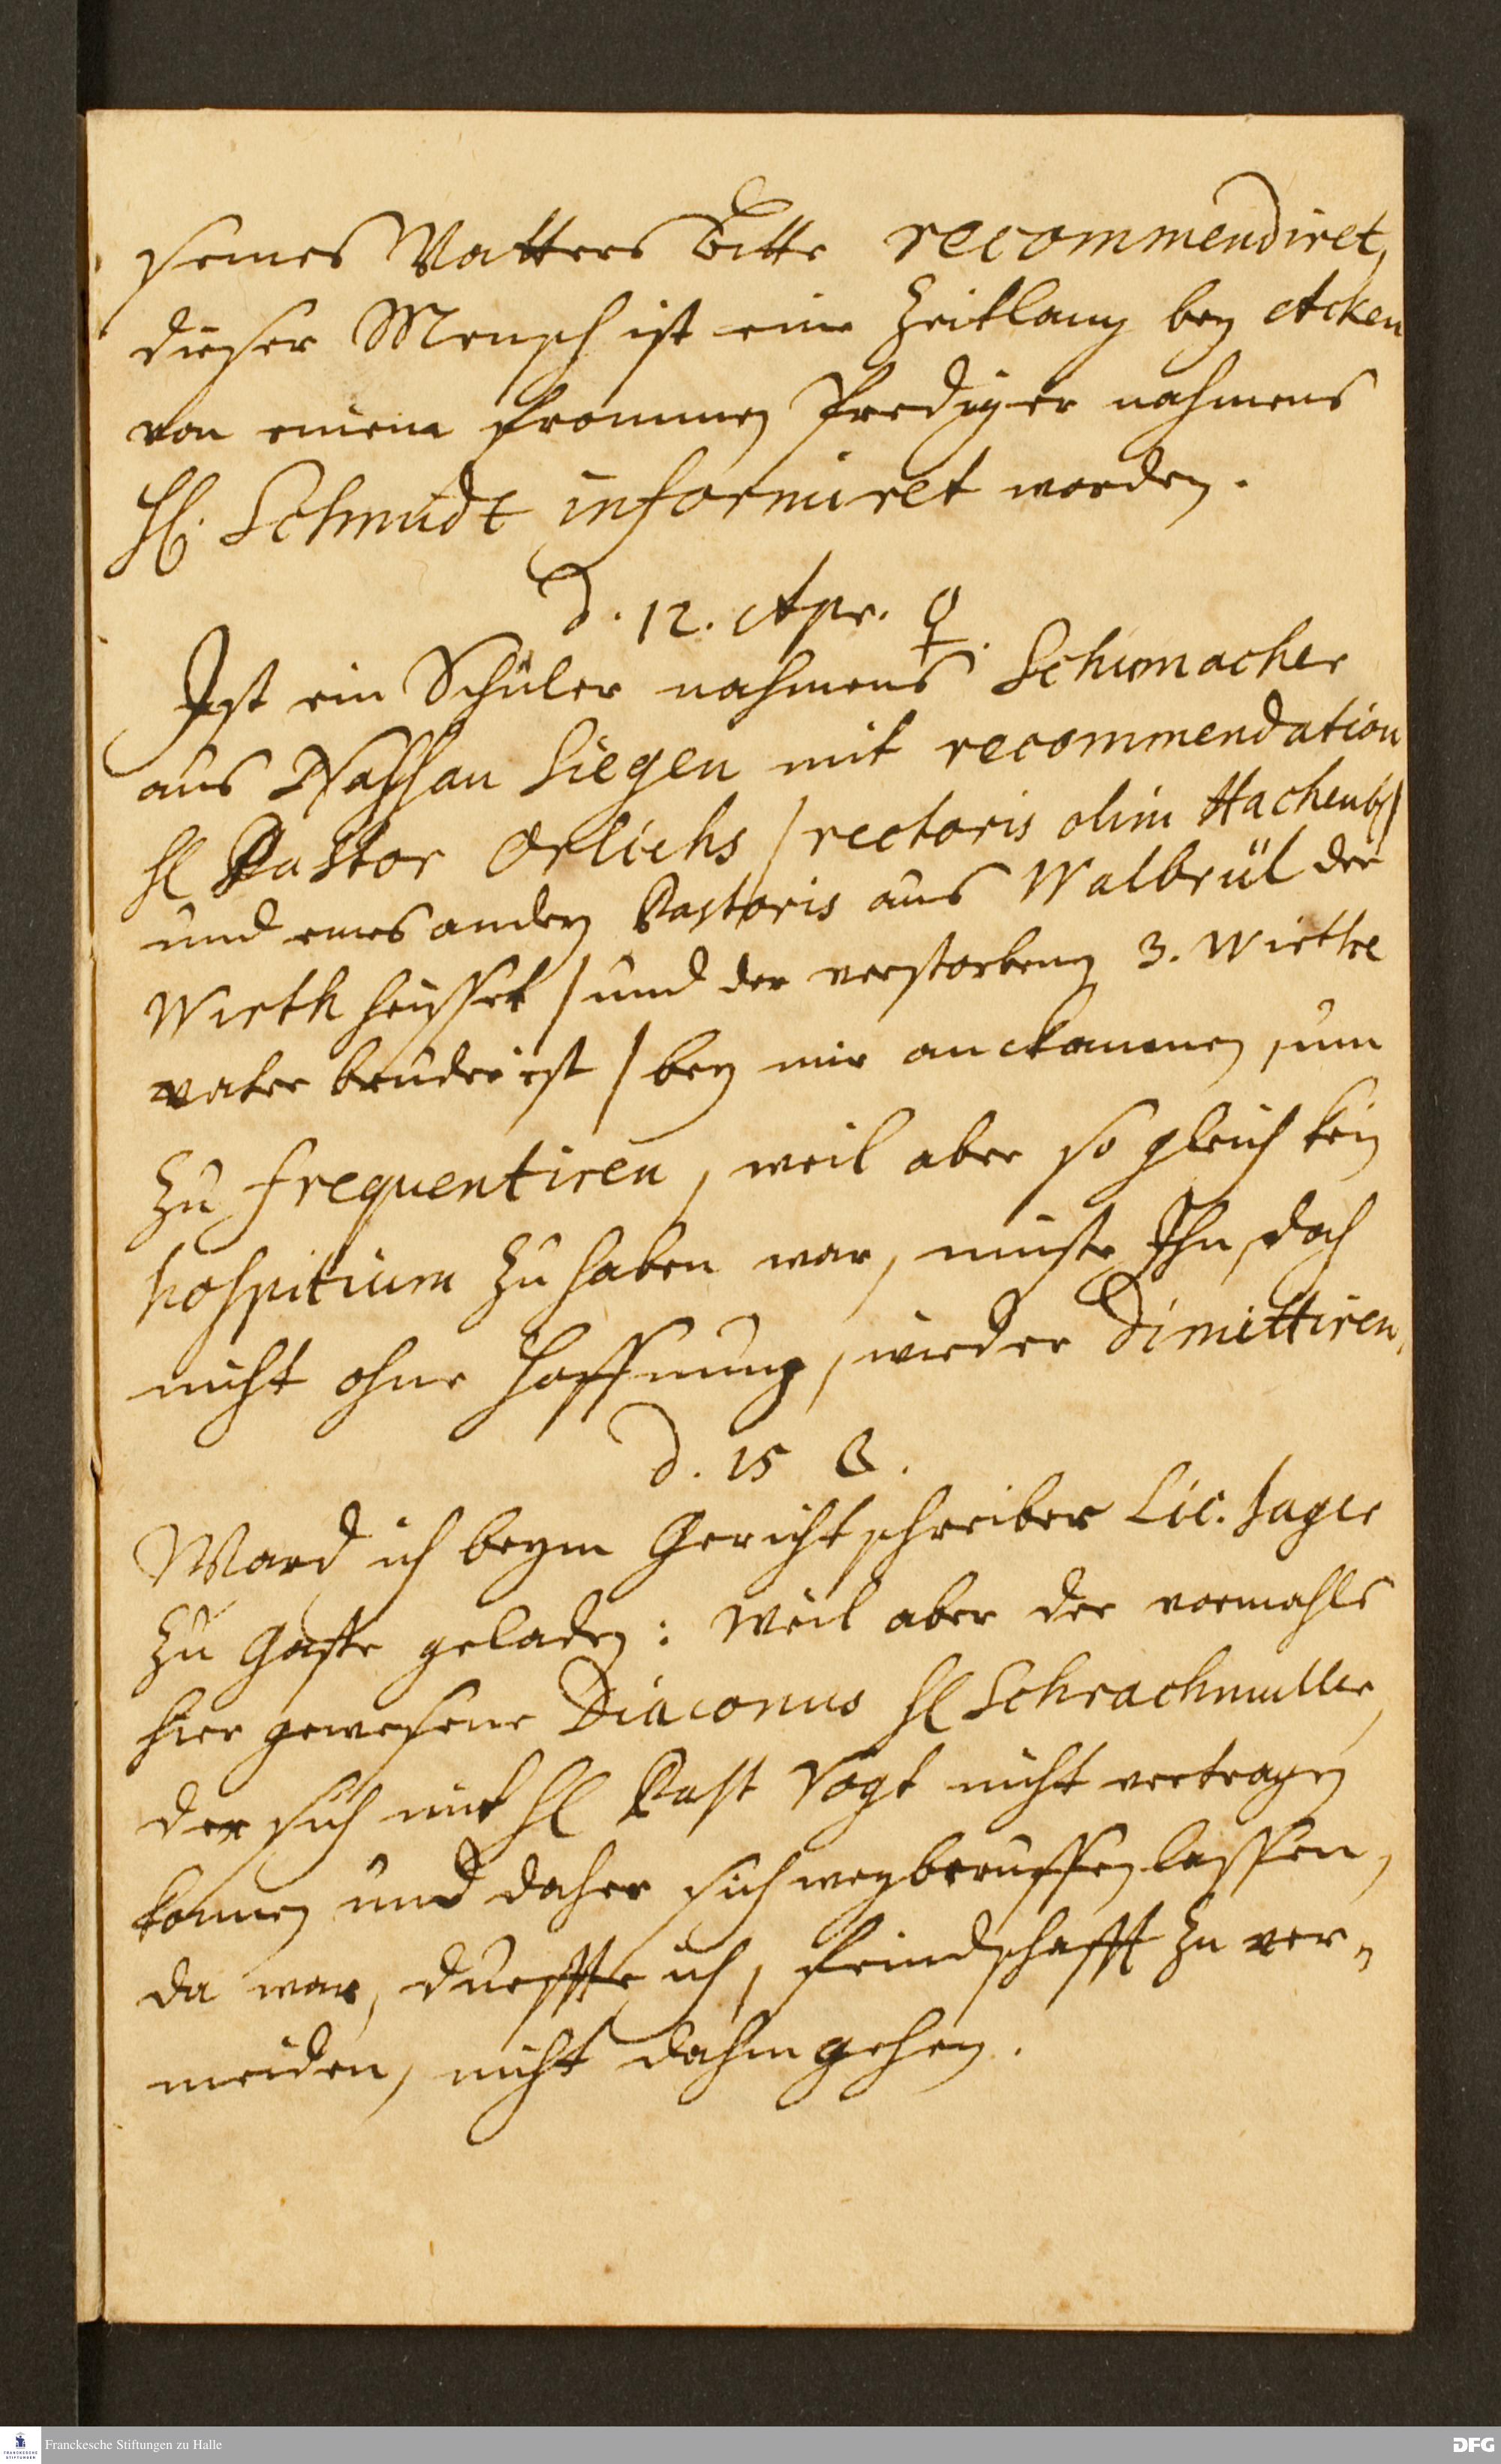 seines Vatters Bitte recommendiret,
dieser Mensch ist eine Zeitlang bey Acken
von einem frommen Prediger nahmens
H. Schmidt informiret worden.
d. 12. Apr. ♀.
Ist ein Schüler nahmens Schumacher
aus Nassau Siegen mit recommendation
H Pastor Orlichs / rectoris olim Hachenb/
und eines andern Pastoris aus Walbrül der
Wirth heisset / und der verstorbenen 3. Wirthe
vater bruder ist / bey mir anckommen, um
zu frequentiren, weil aber so gleich kein
hospitium zu haben war, muste Ihn, doch
nicht ohne Hoffnung, wieder dimittiren.
d. 15
Ward ich beym Gerichtschreiber Lic. Jager
zu Gaste geladen: Weil aber der vormahls
hier gewesene Diaconus H Schrachmuller,
der sich mit H Past Vogt nicht vertragen
konnen und daher sich wegberuffen lassen,
da war, durffte ich, feindschafft zu ver-
meiden, nicht dahin gehen.
Franckesche Stiftungen zu Halle
DFG